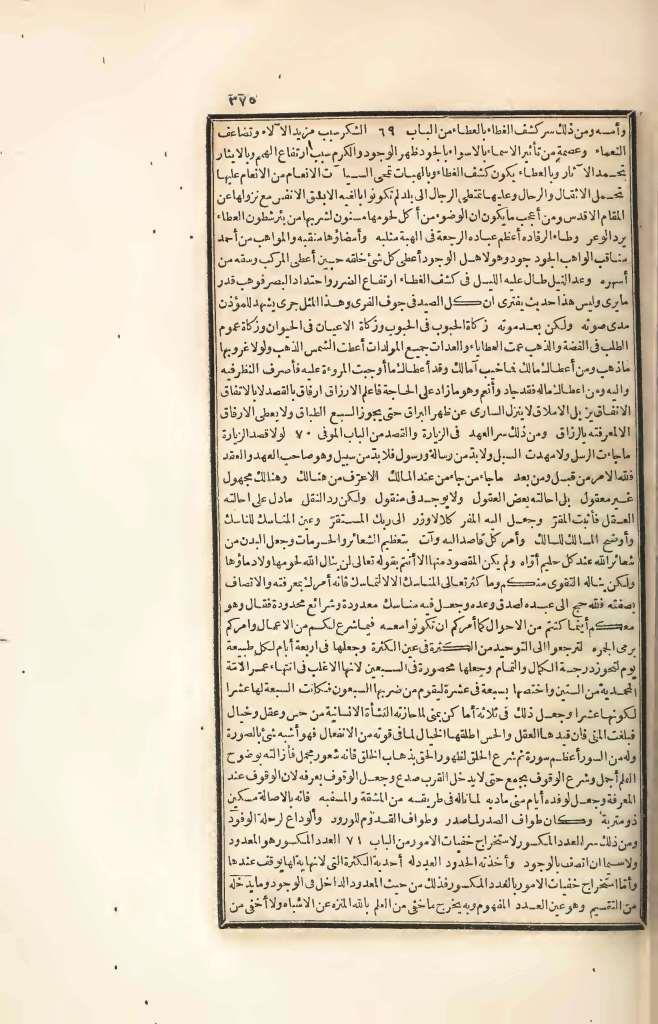 ٣٧٥
وأمسه ومن ذلك سر كشف الغطاء بالعطاء من الباب ٦٩ الشكر سبب مزيد الآلاء وتضاعف
النعماء وعصمة من تأثير الاسماء بالاسواء بالجود ظهر الوجود والكرم سبب ارتفاع الهمم وبالايثار
تحمد الآثار وبالعطاء يكون كشف الغطاء وبالهبات تمحى السيآت الانعام من الانعام عليها
تحمل الاثقال والرحال وعليها تمتطى الرجال الى بلد لم تكونوا بالغيه الا بشق الانفس مع نزولها عن
المقام الاقدس ومن أعجب ما يكون ان الوضوء من أكل لحومها مسنون لشربها من بئر شطون العطاء
يرد الوعر وطاء الرفاده أعظم عباده الرجعة فى الهبة مثلبه وأمضاؤها منقبه والمواهب من أحمد
مناقب الواهب الجود جود وهو لاهل الوجود أعطى كل شئ خلقه حين أعطى المركب وسقه من
أسهره وعد النيل طال عليه الليل فى كشف الغطاء ارتفاع الضرر واحتداد البصر فوهب قدر
ما يرى وليس هذا حديث يفترى ان كل الصيد فى جوف الفرى وهذا المثل جرى يشهد للمؤذن
مدى صوته ولكن بعد موته زكاة الحبوب فى الحبوب وزكاة الاعيان فى الحيوان وزكاة عموم
الطلب فى الفضة والذهب عمت العطايا والعدات جميع المولدات أعطت الشمس الذهب ولولا غروبها
ماذهب ومن أعطاك مالك فما خيب آمالك وقد أعطاك ما أوجبت المروءة عليه فأصرف النظر فيه
واليه ومن اعطاك ماله فقد جاد وأنعم وهو مازاد على الحاجة فاعلم الارزاق ارفاق بالقصد لا بالاتفاق
الانفاق يزيل الاملاق لا ينزل السارى عن ظهر البراق حتى يجوز السبع الطباق ولا يعطى الارفاق
الا لمعرفته بالرزاق ومن ذلك سر العهد فى الزيارة والقصد من الباب الموفى ٧٠ لولا قصد الزيارة
ما جاءت الرسل ولا مهدت السبل ولا بد من رسالة ورسول فلا بد من سبيل وهو صاحب العهد والعقد
فلله الامر من قبل ومن بعد ما جاء من جاء من عند المالك الا عزف من هنالك وهنالك مجهول
غير معقول بلى احالته بعض العقول ولا يوجد فى منقول ولكن رد النقل مادل على احالته
العقل فأثبت المقرّ وجعل اليه المفر كلا لا وزر الى ربك المستقرّ وعين المناسك للناسك
وأوضح المسالك للسالك وأمر كل قاصد اليه وآت بتعظيم الشعائر والحرمات وجعل البدن من
شعائر الله عند كل حليم أوّاه ولم يكن المقصود منها الا أنتم بقوله تعالى لن ينال الله لحومها ولا دماؤها
ولكن يناله التقوى منكم وما كثر تعالى المناسك الا لالتماسك فانه أمرك بمعرفته والاتصاف
بصفته فلله حج الى عبده لصدق وعده وجعل فيه مناسك معدودة وشرائع محدودة فقال وهو
معكم أينما كنتم من الاحوال كما أمركم ان تكونوا معه فيما شرع لكم من الاعمال وامركم
برمى الجمره لترجعوا الى التوحيد من الكثرة فى عين الكثرة وجعلها فى اربعة أيام لكل طبيعة
يوم لتحوز درجة الكمال والتمام وجعلها محصورة فى السبعين لانها الاغلب فى انتهاء عمر الامّة
المحمدية من الستين واختصها بسبعة فى عشرة ليقوم من ضربها السبعون فكانت السبعة لها عشرا
لكونها عشرا وجعل ذلك فى ثلاثة أماكن بمنى لما حازته النشأة الانسانية من حس وعقل وخيال
فبلغت المنى فان قيدها العقل والحس اطلقها الخيال لما فى قوته من الانفعال فهو أشبه شئ بالصورة
وله من السور أعظم سورة ثم شرع الحلق لظهور الحق بذهاب الخلق فانه شعور مجمل فأزالته بوضوح
العلم أجل وشرع الوقوف بجمع حتى لا يدخل القرب صدع وجعل الوقوف بعرفه لان الوقوف عند
المعرفة وجعل لوفده أيام منى مأدبه لما ناله فى طريقه من المشقة والمسغبه فانه بالاصالة مسكين
ذو متربة وكان طواف الصدر لما صدر وطواف القدوم للورود والوداع لرحلة الوفود
ومن ذلك سر العدد المكسور لاستخراج خفيات الامور من الباب ٧١ العدد المكسور هو المعدود
ولا سيما ان اتصف بالوجود وأخذته الحدود العدد له أحدية الكثرة التى لانهاية لها يوقف عندها
وأما استخراج خفيات الامور بالعدد المكسور فذلك من حيث المعدود الداخل فى الوجود وما يدخله
من التقسيم وهو عين العدد المفهوم وبه يخرج ما خفى من العلم بالله المنزه عن الاشباه ولا أخفى من